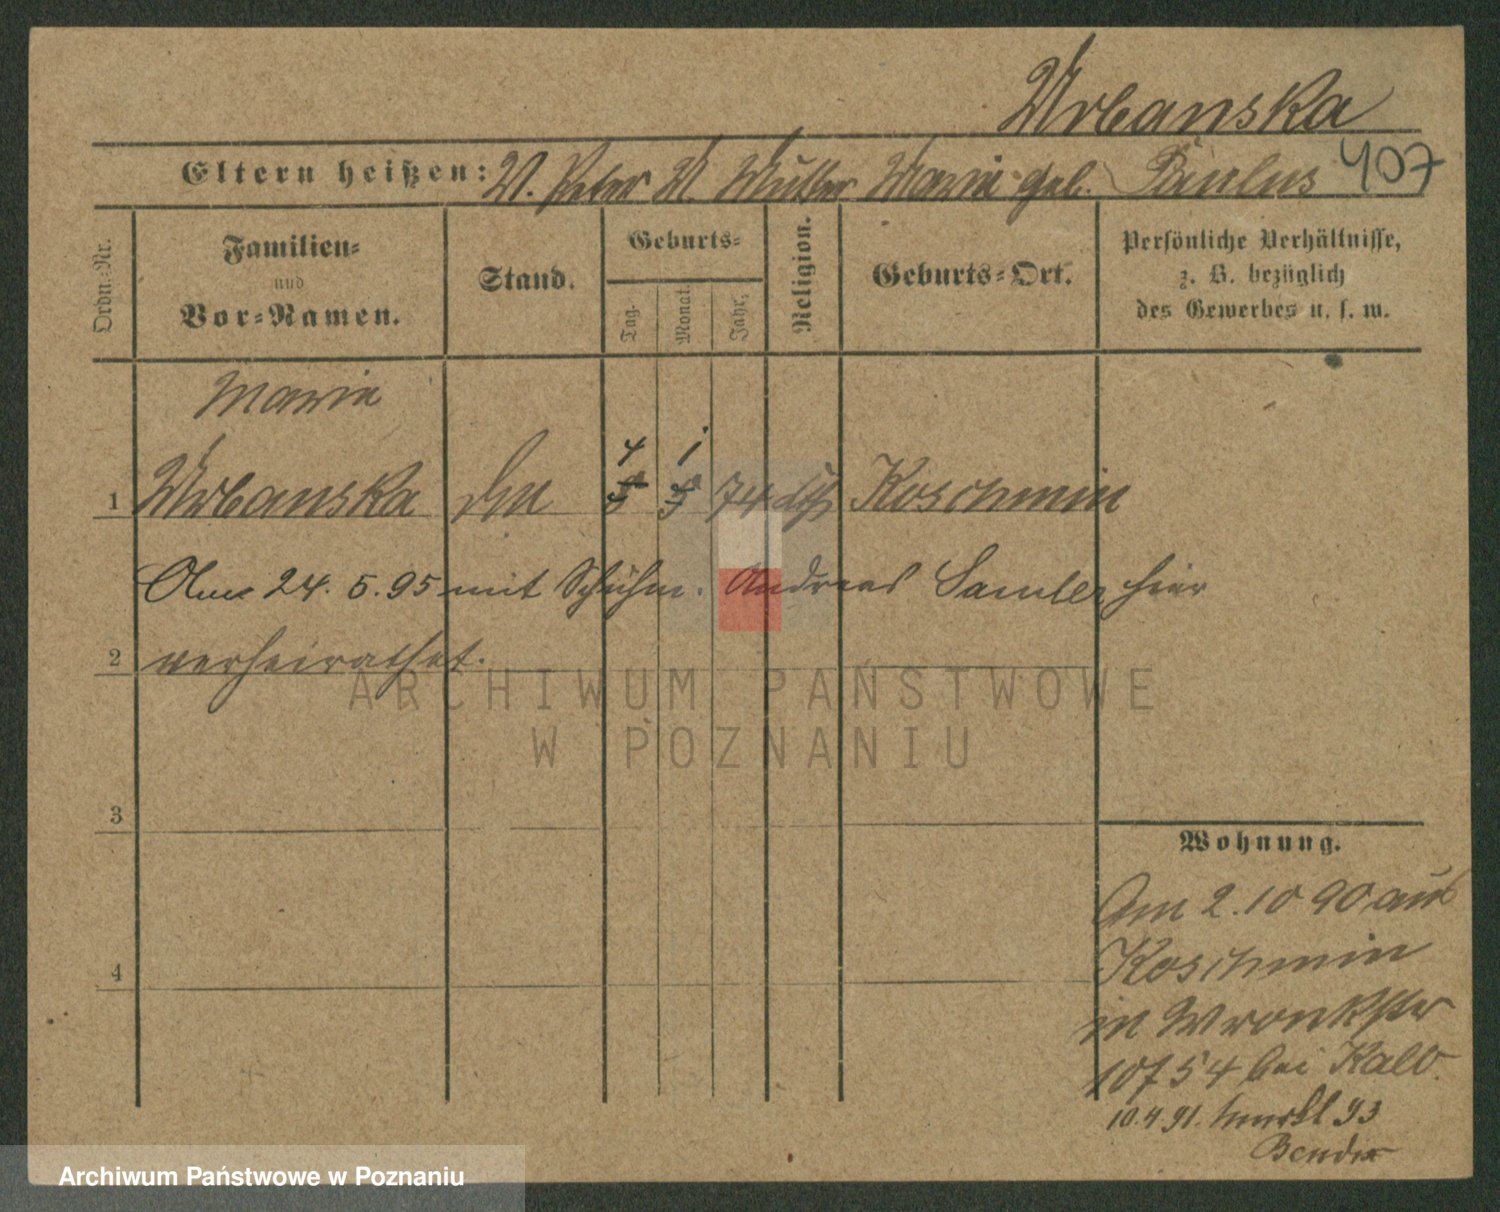 Urbanska
407
Eltern heißen: V. Peter U. Mutter Marie geb. Paulus
Ordn.-Nr.
Familien-
und
Vor-Namen.
Stand.
Geburts-
Tag.
Monat.
Jahr.
Religion.
Geburts-Ort.
Persönliche Verhältnisse,
z. B. bezüglich
des Gewerbes u. s. w.
Marie
4 1
1 Urbanska 74 kth Koschmin
Am 24. 5. 95 mit Schuhm. Andreas Samler hier
2 verheirathet.
3
4
Wohnung.
Am 2. 10 90 aus
Koschmin
in Wronkstr
bei Kalb.
10.4.91. 93
Bender
ARCHIWUM PAŃSTWOWE
W POZNANIU
Archiwum Państwowe w Poznaniu